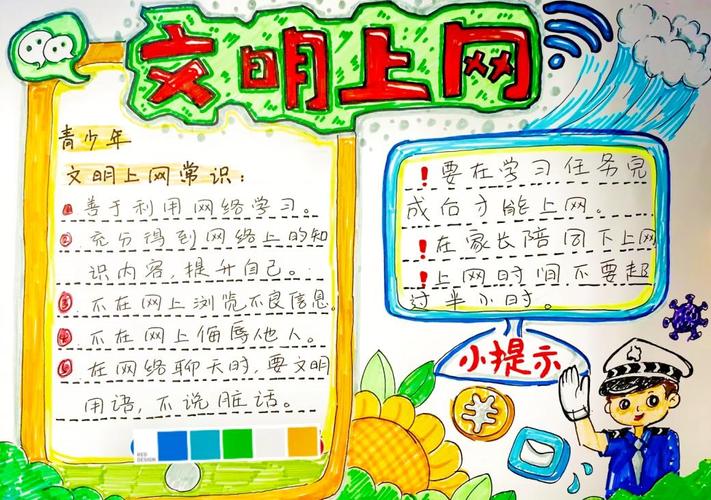 文明上网
青少年
文明上网常识：
①善于利用网络学习。
②充分得到网络上的知
识内容，提升自己。
③不在网上浏览不良信息。
④不在网上侮辱他人。
⑤在网络聊天时，要文明
用语，不说脏话。
RED
DESIGN
！要在学习任务完
成后才能上网。
！在家长陪同下上网
！上网时间不要超
过半小时。
小提示